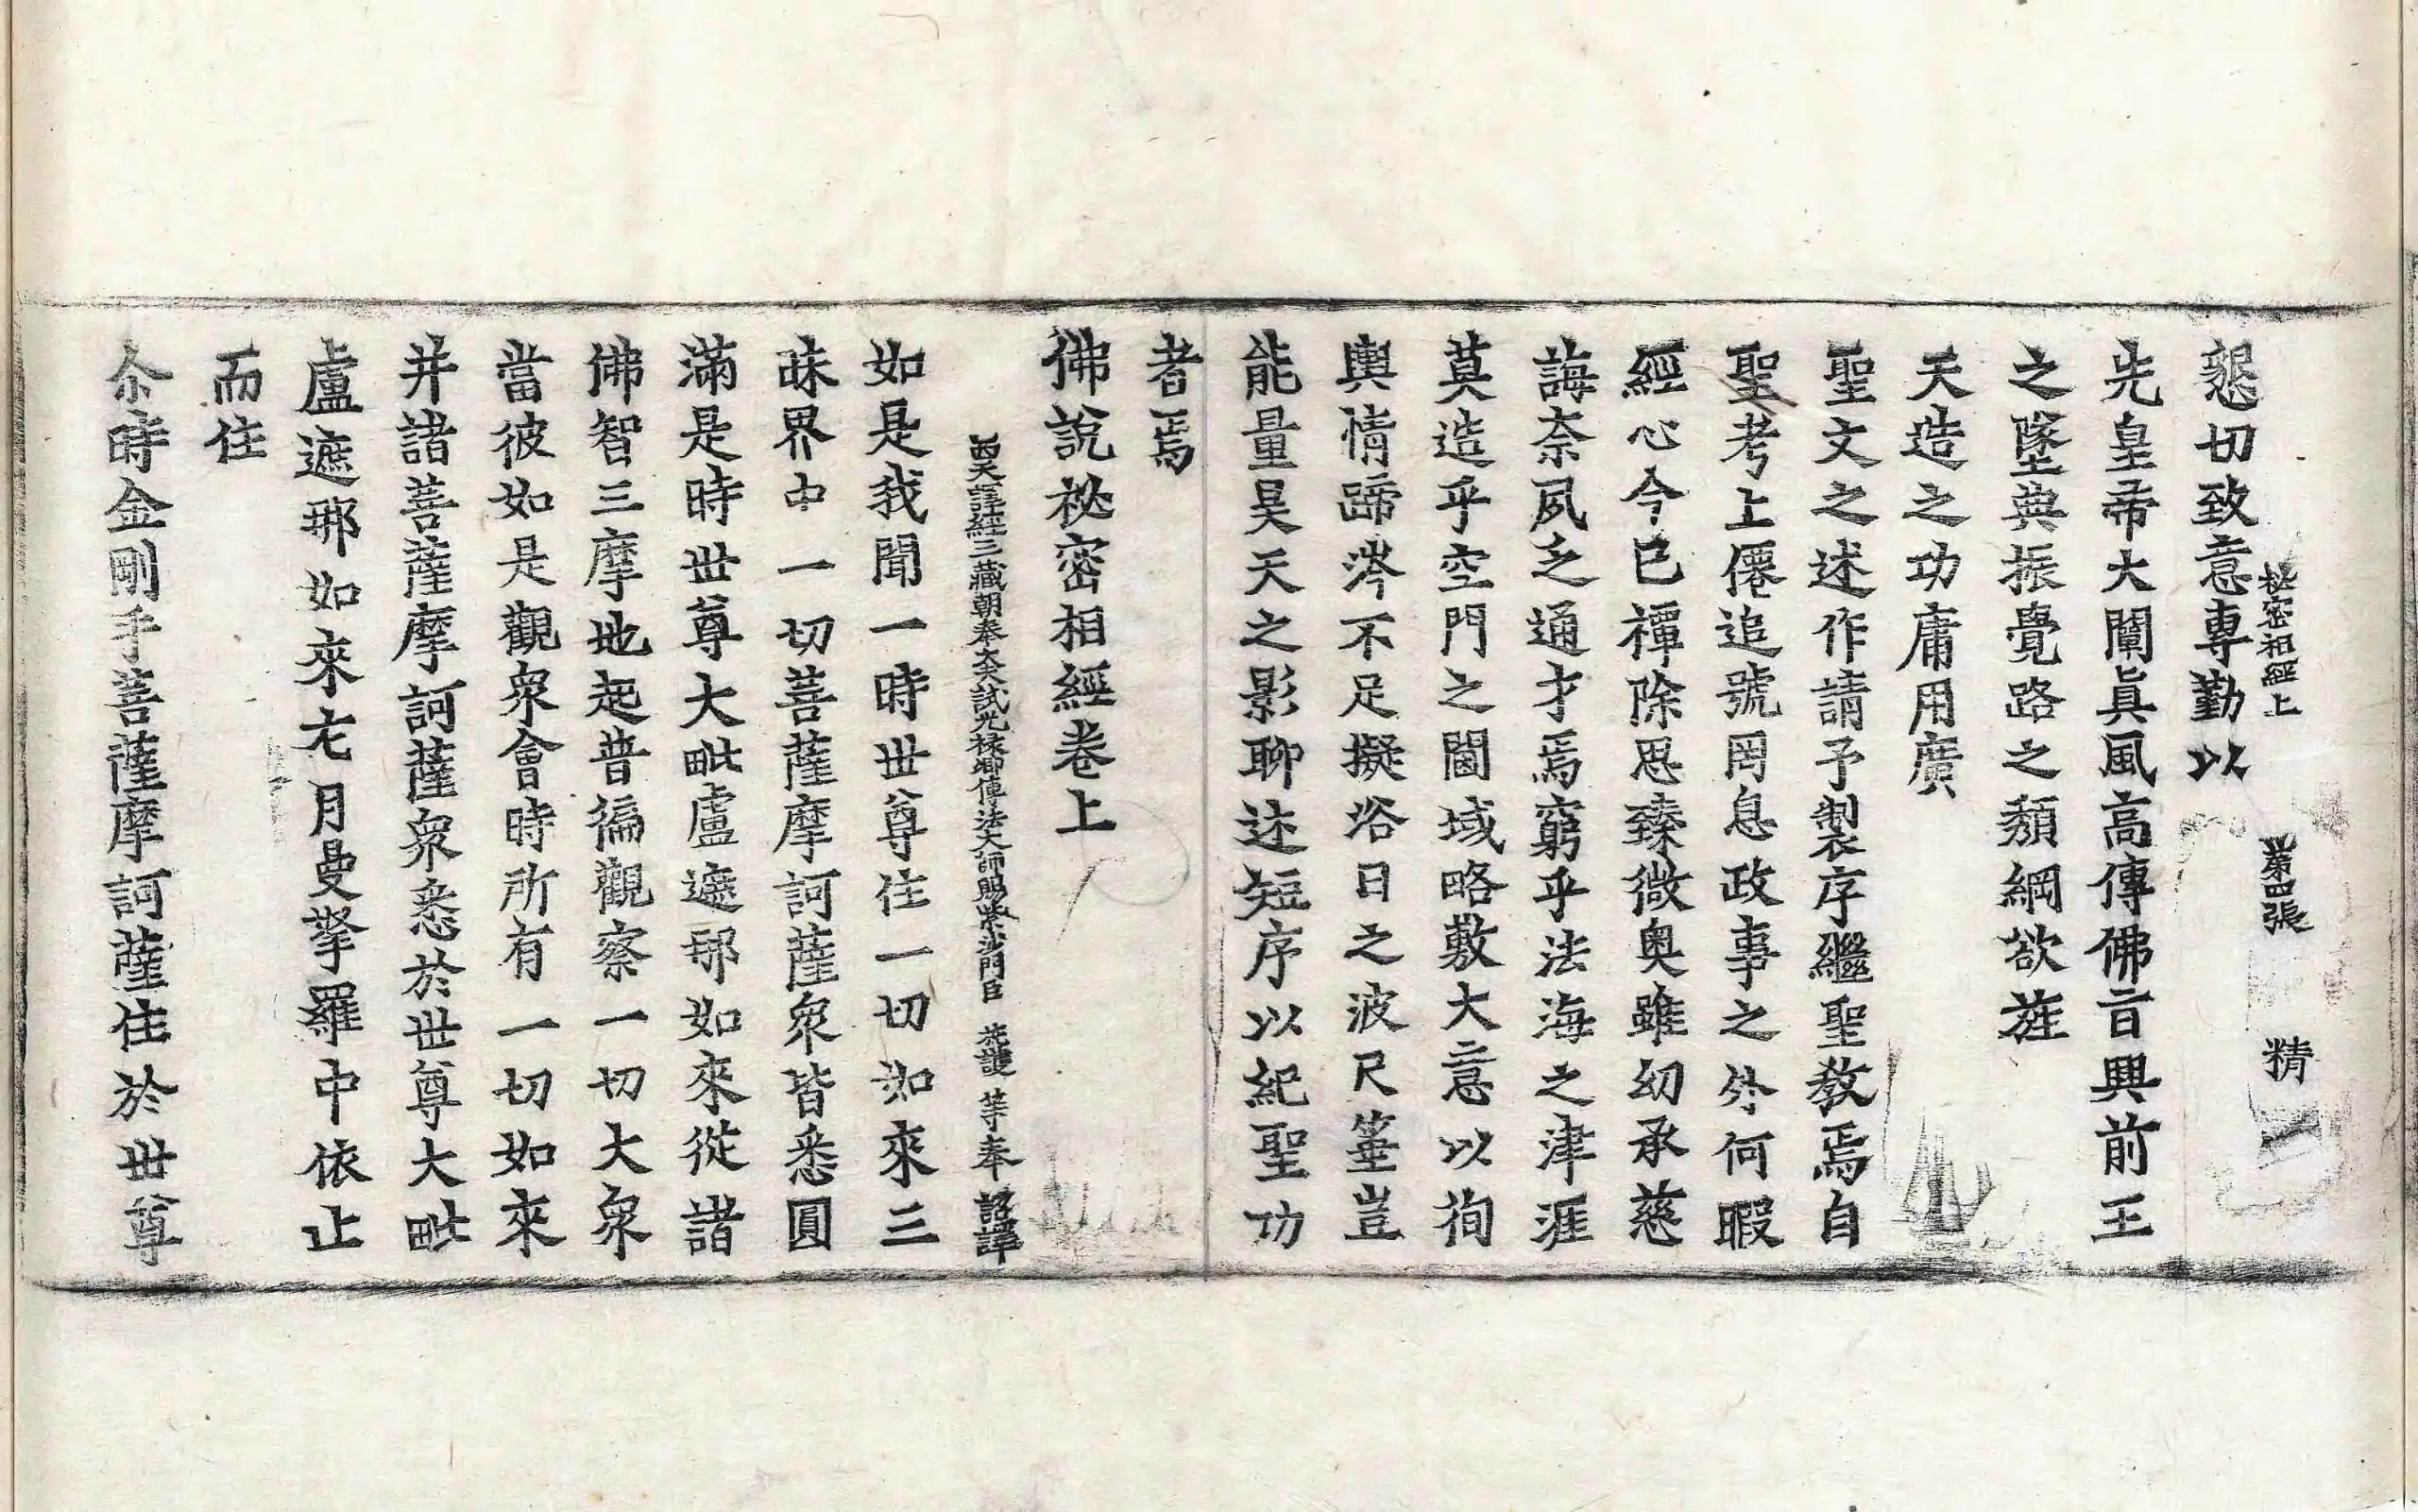 秘密相經上 第四張 精
懇切致意專勤以
先皇帝大闡眞風高傳佛旨興前王
之墜典振覺路之頹綱欲旌
天造之功庸用廣
聖文之述作請予製序繼聖敎焉自
聖考上僊追號罔息政事之外何暇
經心今已禫除思臻微奧雖幼承慈
誨柰夙乏通才焉窮乎法海之津涯
莫造乎空門之閫域略敷大意以徇
輿情蹄涔不足擬浴日之波尺箠豈
能量昊天之影聊述短序以紀聖功
者焉
佛說祕密相經卷上
西天譯經三藏朝奉大夫試光祿卿傳法大師賜紫沙門臣 施護 等奉 詔譯
如是我聞一時世尊住一切如來三
昧界中一切菩薩摩訶薩衆皆悉圓
滿是時世尊大毗盧遮那如來從諸
佛智三摩地起普徧觀察一切大衆
當彼如是觀衆會時所有一切如來
幷諸菩薩摩訶薩衆悉於世尊大毗
盧遮那如來左月曼拏羅中依止
而住
尒時金剛手菩薩摩訶薩住於世尊